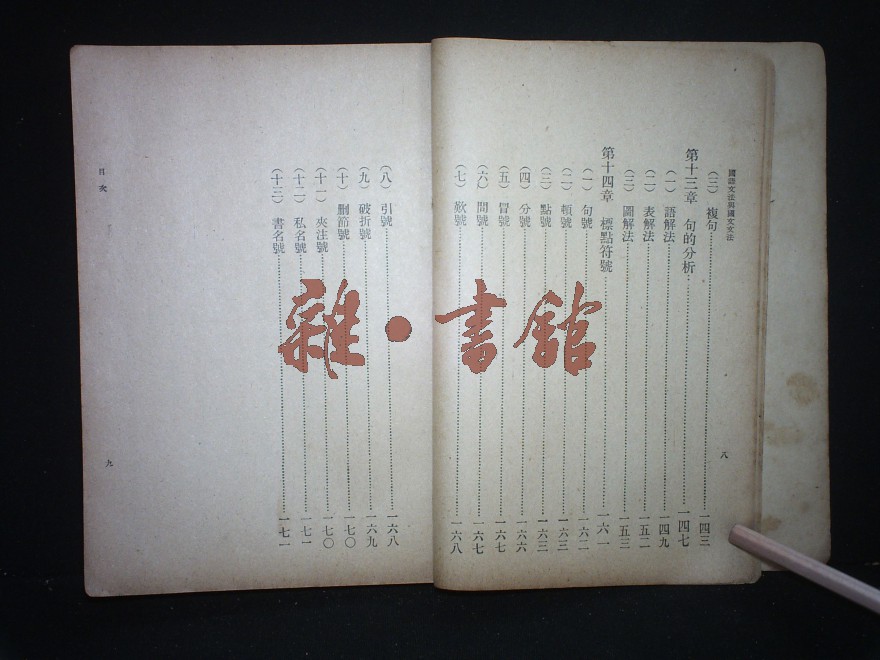 國語文法與國文文法
(三) 複句 一四三
第十三章 句的分析 一四七
(一) 語解法 一四九
(二) 表解法 一五二
(三) 圖解法 一五三
第十四章 標點符號 一六一
(一) 句號 一六二
(二) 頓號 一六三
(三) 點號 一六三
(四) 分號 一六六
(五) 冒號 一六七
(六) 問號 一六七
(七) 歎號 一六八
八
(八) 引號 一六八
(九) 破折號 一六九
(十) 刪節號 一七〇
(十一) 夾注號 一七〇
(十二) 私名號 一七一
(十三) 書名號 一七一
目次
九
雜·書館